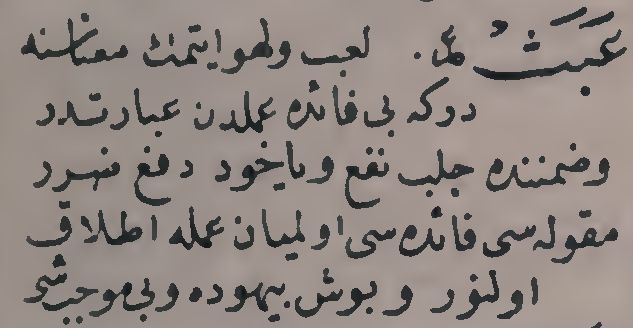 عَبَثْ عل. لعب ولهو ايتمك معناسنه
دركه بى فائده عملدن عبارتدر
وضمننده جلب نفع وياخود دفع ضرر
مقوله سى فائده سى اولميان عمله اطلاق
اولنور و بوش بيهوده وبى موجب شى